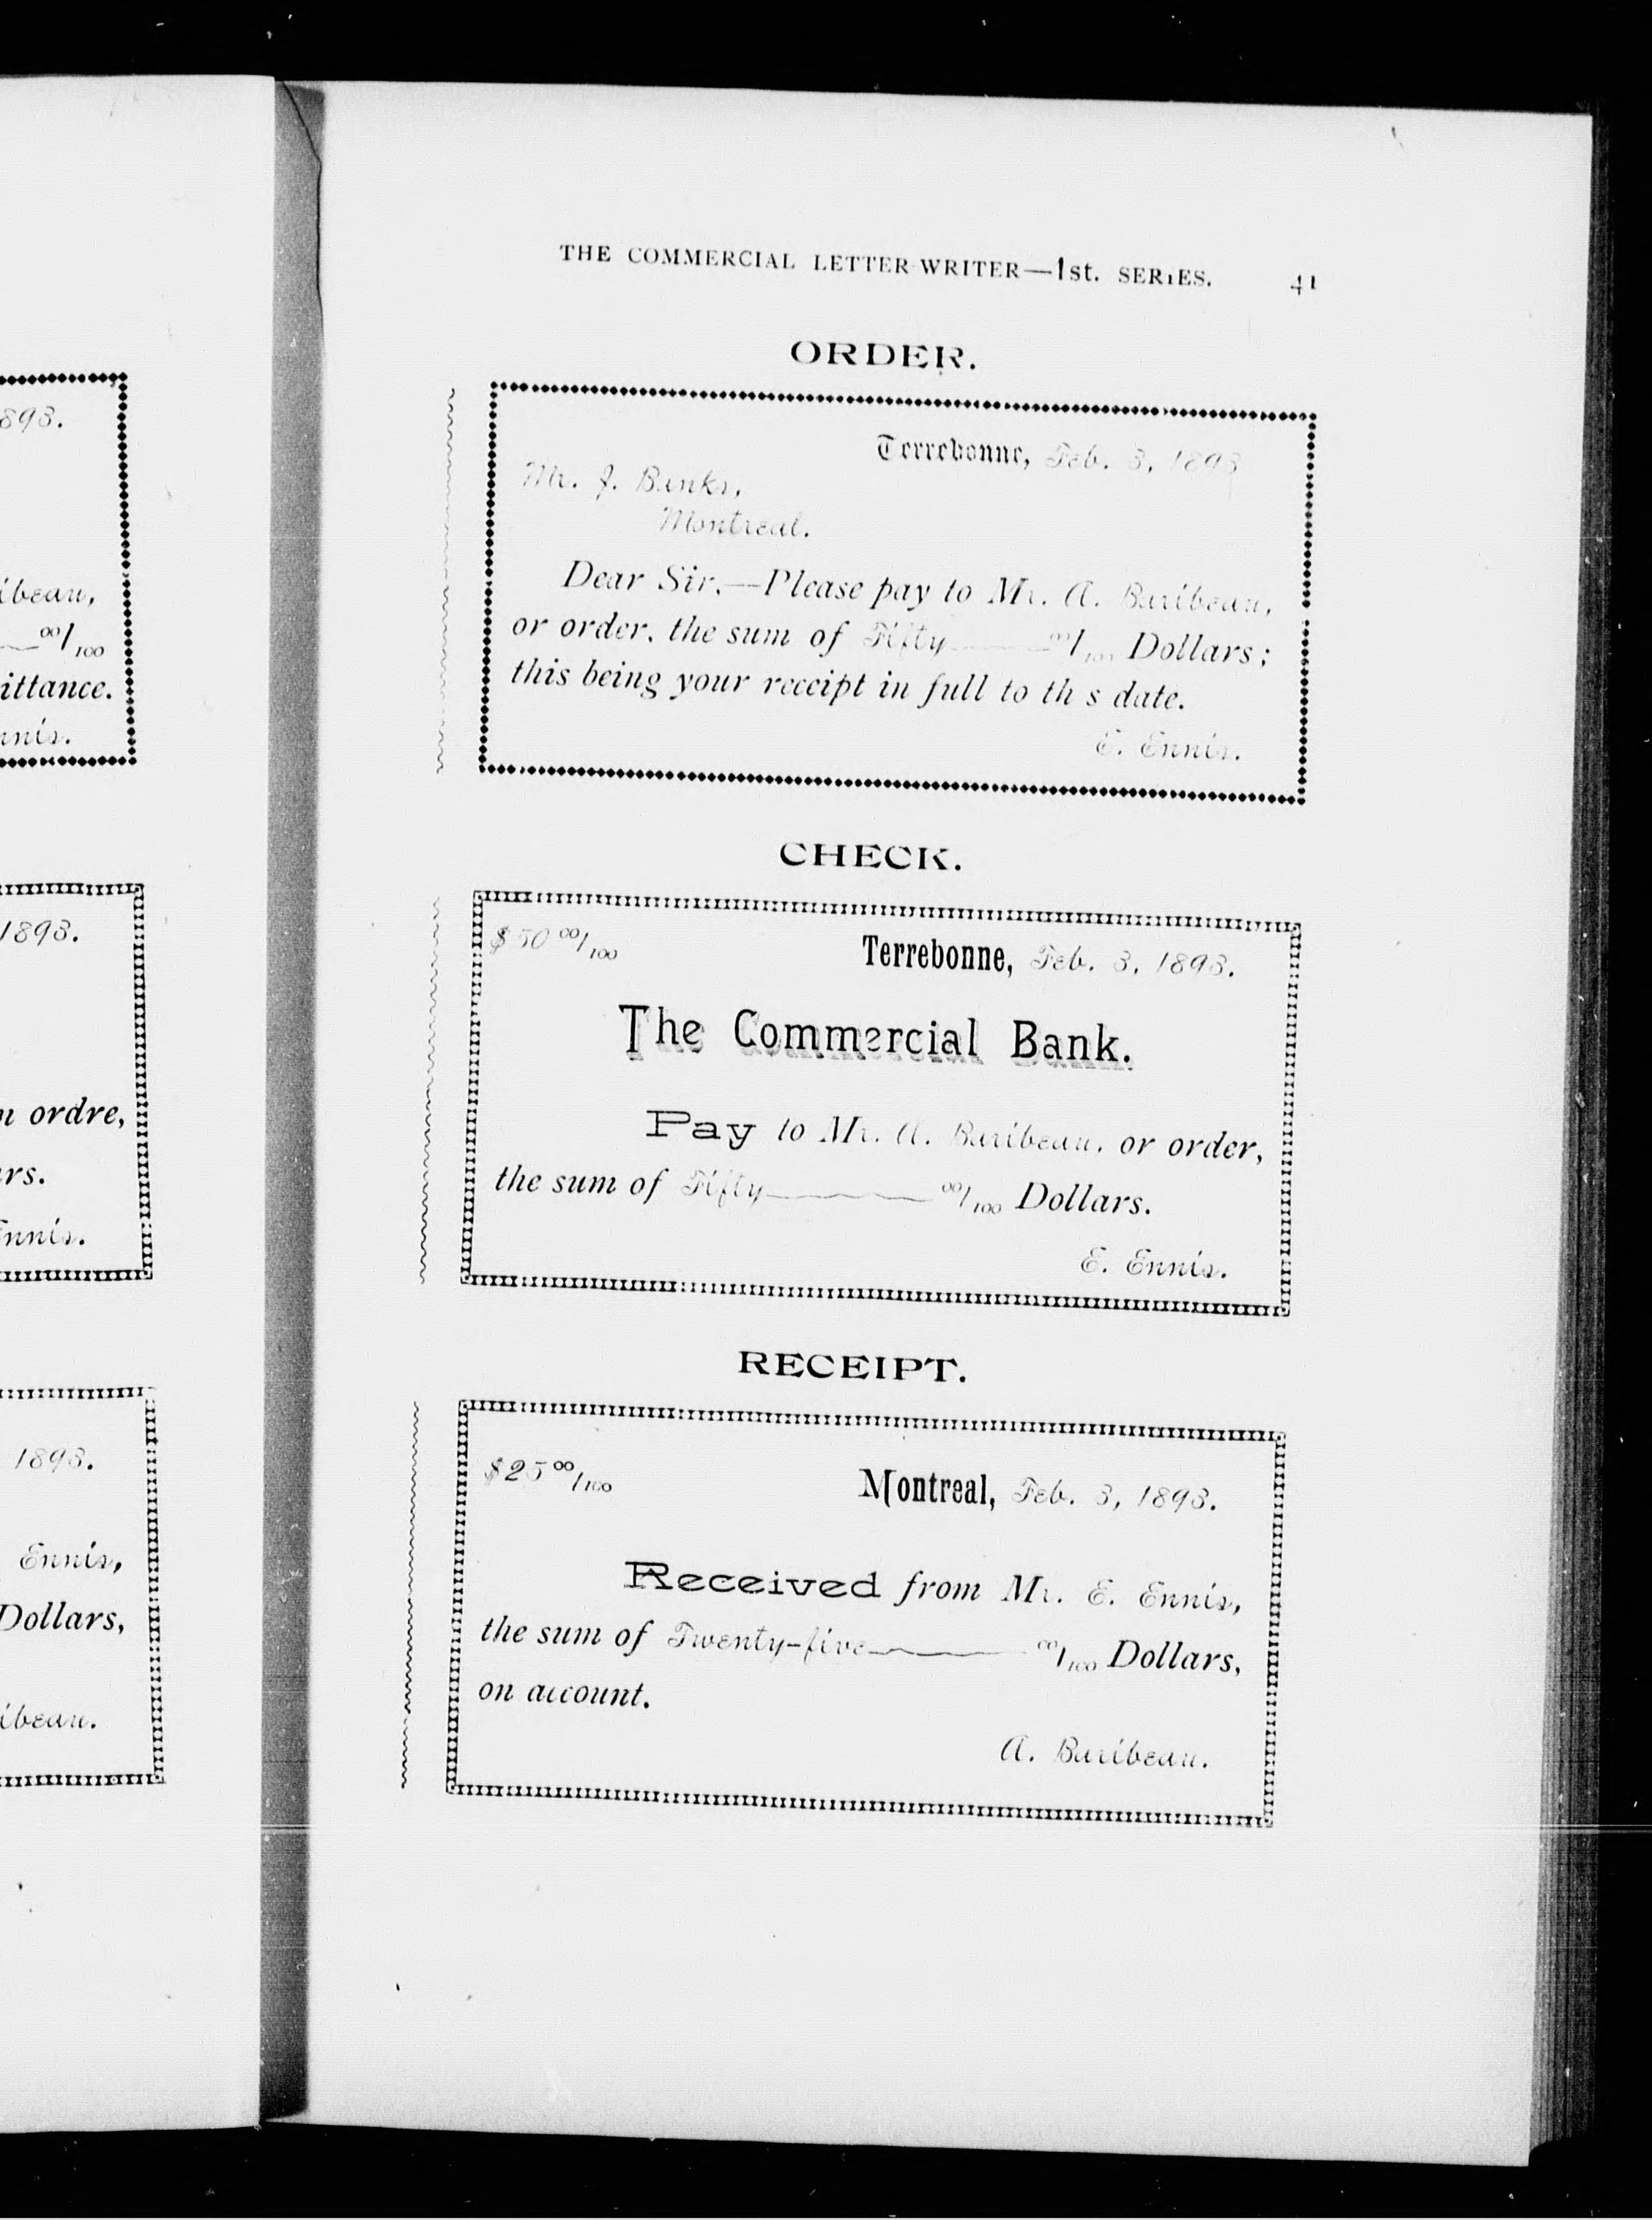 893.
ibeau,
00/100
ittance.
nnis.
1893.
n ordre,
rs.
Ennis.
1893.
Ennis,
Dollars,
ibeau.
THE COMMERCIAL LETTER-WRITER—1st. SERIES. 41
ORDER.
Terrebonne, Feb. 3, 1893
Mr. J. Banks,
Montreal.
Dear Sir,—Please pay to Mr. A. Baribeau,
or order, the sum of Fifty 00/100 Dollars;
this being your receipt in full to th s date.
E. Ennis.
CHECK.
$50 00/100 Terrebonne, Feb. 3, 1893.
The Commercial Bank.
Pay to Mr. A. Baribeau, or order,
the sum of Fifty 00/100 Dollars.
E. Ennis.
RECEIPT.
$25 00/100 Montreal, Feb. 3, 1893.
Received from Mr. E. Ennis,
the sum of Twenty-five 00/100 Dollars,
on account.
A. Baribeau.